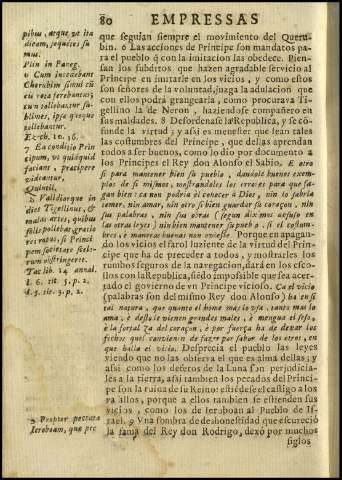 80 EMPRESSAS
pibus, atque, ut ita
dicam, sequaces su
mus.
Plin in Paneg.
6 Cum incedebant
Cherubim simul eũt
eis rosa ferebantur;
eum tollebantur su-
blimes, ipsa quoque
tollebantur.
Ezech. 10. 16.
7 Ea conditio Prin
cipum, vt quidquid
faciant, praecipere
videantur.
Quintil.
8 Validiorque in
dies Tigellinus, &
malas artes, quibus
solis pollebat, gratio
res ratus, si Princi
pem societate scele-
rum obstringeret.
Tac. lib. 14. annal.
l. 6. tit. 5. p. 2.
l. 3. tit. 3. p. 2.
9 Propter peccata
Ieroboam, quæ pec
que seguian siempre el movimiento del Queru-
bin. 6 Las acciones de Principe son mandatos pa-
ra el pueblo q̃ con la imitacion las obedece. Pien-
san los subditos que hazen agradable servicio al
Principe en imitarle en los vicios, y como estos
son señores de la voluntad, juzga la adulacion que
con ellos podrá grangearla, como procurava Ti-
gellino la de Neron, haziendose compañero en
sus maldades. 8 Desordenase la Republica, y se cõ-
funde la virtud; y assi es menester que sean tales
las costumbres del Principe, que dellas aprendan
todos a ser buenos, como lo dio por documento a
los Principes el Rey don Alonso el Sabio. E otro
si para mantener bien su pueblo, dandole buenos exem-
plos de si mismos, mostrandoles los errores para que fa-
gan bien: ca non podria el conocer a Dios, nin lo sabria
temer, nin amar, nin otro si bien guardar su coraçon, nin
sus palabras, nin sus obras (segun diximos desuso en
las otras leyes) nin bien mantener su pueblo, si el costum-
bres, e maneras buenas non ouiesse. Porque en apagan-
do los vicios el farol luziente de la virtud del Prin-
cipe que ha de preceder a todos, y mostrarles los
rumbos seguros de la navegacion, dará en los esco-
llos con la Republica, siẽdo impossible que sea acer-
tado el govierno de vn Principe vicioso. Ca el vicio
(palabras son del mismo Rey don Alonso) ha en si
tal natura, que quanto el home mas lo vsa, tanto mas lo
ama, è desto le vienen grandes males, è mengua el seso,
è la fortaleza del coraçon, è por fuerça ha de dexar los
fechos quel convienen de fazer por sabor de los otros, en
que halla el vicio. Desprecia el pueblo las leyes
viendo que no las observa el que es alma dellas; y
assi como los defetos de la Luna son perjudicia-
les a la tierra, assi tambien los pecados del Princi-
pe son la ruina de su Reino: estiẽdese el castigo a los
vasallos, porque a ellos tambien se estienden sus
vicios, como los de Ieroboan al Pueblo de Is-
rael. 9 Vna sombra de deshonestidad que escureció
la fama del Rey don Rodrigo, dexó por muchos
siglos